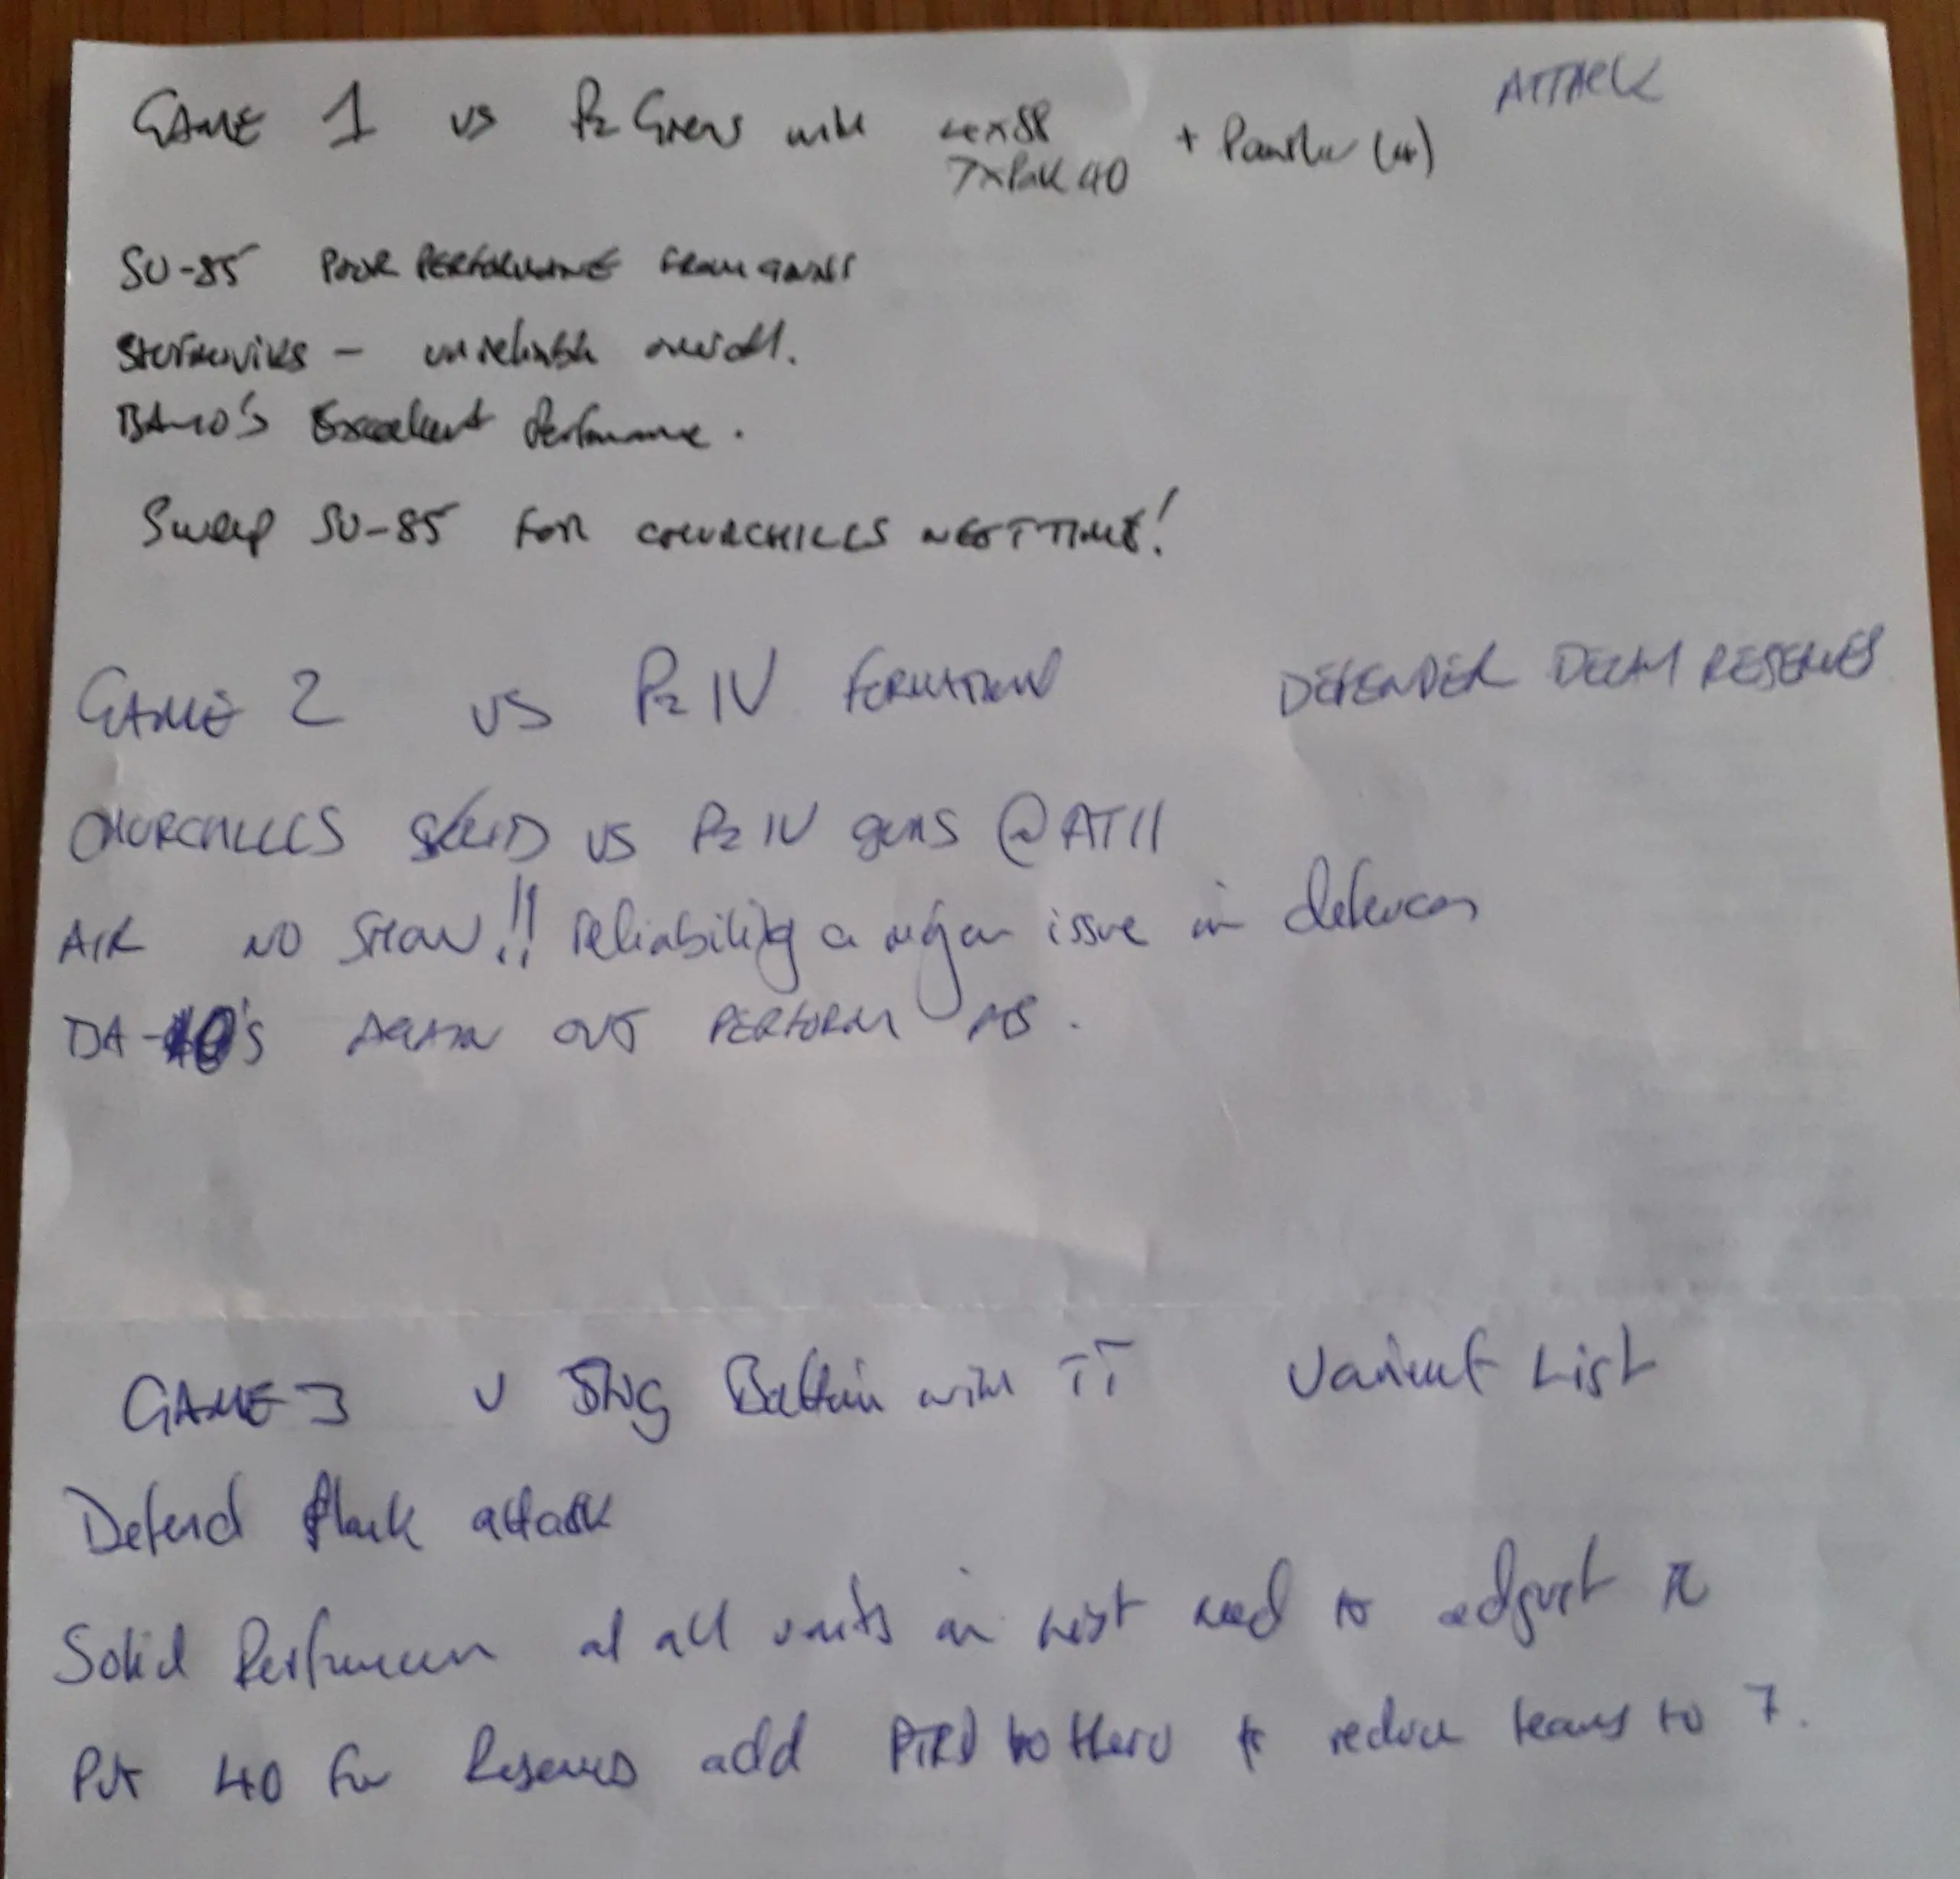 GAME 1 vs Pz Grens with 4x88 + Panther (4) ATTACK
7xPak 40
SU-85 POOR PERFORMANCE FROM GUNS
STURMOVIKS - unreliable overall.
BA-10'S Excellent Performance.
Swap SU-85 FOR CHURCHILLS NEXT TIME!
GAME 2 vs Pz IV FORMATION DEFENDER DELAY RESERVES
CHURCHILLS SOLID VS Pz IV guns @ AT11
AIR NO SHOW!! reliability a major issue in defence
BA-10's AGAIN OUT PERFORM
GAME 3 V Stug Battn with TT Variant List
Defend flank attack
Solid Performance of all units in list need to adjust
Put 40 for Reserves add PTRD to Hero to reduce teams to 7.